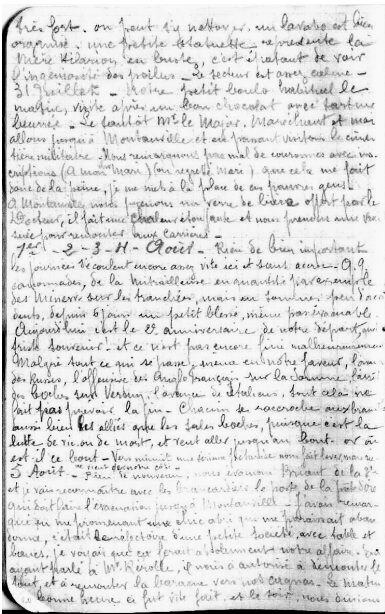 très fort. on peut s'y nettoyer. un lavabo est bien
organisé. une petite statuette représente la
Mère Hilarion, en buste, c'est épatant de voir
des poilus - Le secteur est assez calme -
31 Juillet - Notre petit boulo habituel le
matin, vite après un bon chocolat avec tartine
beurrée - Le tantôt Mr le Major, Maréchaut et moi
allons jusqu'à Montauville et en passant visitons le cime-
tière militaire - Nous remarquons pas mal de couronnes avec ins-
criptions (A mon Mari) (on regrette Mari) que cela me fait
donc de la peine, je me mets à la place de ces pauvres gens -
A Montauville nous prenons un verre de bière offert par le
Docteur, il fait une chaleur étouffante et nous prenons notre
pour remonter aux carrières -
1er - 2 - 3 - 4 - Août - Rien de bien important
les journées s'écoulent encore assez vite ici et sans accroc. Q.q
canonnades, de la Mitrailleuse en quantité par exemple
des Minenw. sur les tranchées, mais en somme peu d'acci-
dents, depuis 6 jours un petit blessé, même pas évacuable.
Aujourd'hui c'est le 2e anniversaire de notre départ, quel
triste souvenir - et ce n'est pas encore fini malheureusement
Malgré tout ce qui se passe, même en notre faveur, l'avance
des Russes, l'offensive des Anglo Français sur la Somme, l'arrêt
des boches sur Verdun, l'avance des italiens, tout cela ne
fait pas prévoir la fin - Chacun se raccroche
aussi bien les alliés que les sales boches, puisque c'est la
lutte de vie ou de mort, et veut aller jusqu'au bout - or où
est il ce bout -
5 Août - Rien de nouveau, nous évacuons
et je vais reconnaître avec les brancardiers le poste de la
qui doit faire l'évacuation jusqu'à Montauville - J'avais remar-
qué en me promenant une chic abri qui me paraissait aban-
donné, c'était le réfectoire d'une petite société, avec table et
bancs, je voyais que ce serait absolument notre affaire. En
ayant parlé à Mr Kerolle, il nous a autorisé à démonter le
tout, et à remonter la baraque vers nos cagnas. Le matin
de bonne heure ce fut vite fait, et le soir, nous avions